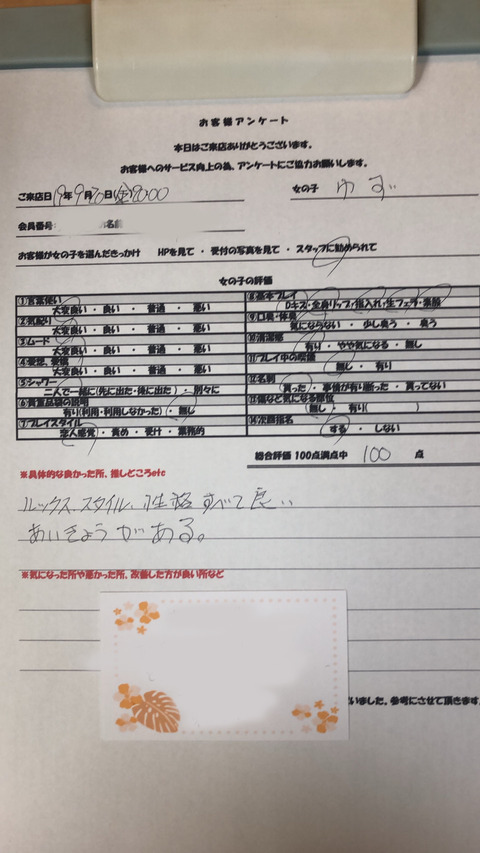 お客様アンケート
本日はご来店ありがとうございます。
お客様へのサービス向上の為、アンケートにご協力お願いします。
ご来店日 19年 9月 20日(金)20:00 女の子 ゆず
会員番号: 名前
お客様が女の子を選んだきっかけ HPを見て ・ 受付の写真を見て ・ スタッフに勧められて
女の子の評価
①言葉使い
大変良い ・ 良い ・ 普通 ・ 悪い
②気配り
大変良い ・ 良い ・ 普通 ・ 悪い
③ムード
大変良い ・ 良い ・ 普通 ・ 悪い
④愛想、表情
大変良い ・ 良い ・ 普通 ・ 悪い
⑤シャワー
二人で一緒に(先に出た・後に出た) ・ 別々に
⑥貴重品袋の説明
有り(利用・利用しなかった) ・ 無し
⑦プレイスタイル
恋人感覚 ・ 責め ・ 受け ・ 業務的
⑧基本プレイ
Dキス・全身リップ・指入れ・生フェラ・素股
⑨口臭・体臭
気にならない ・ 少し臭う ・ 臭う
⑩清潔感
有り ・ やや気になる ・ 無し
⑪プレイ中の喫煙
無し ・ 有り
⑫名刺
貰った ・ 事情が有り断った ・ 貰ってない
⑬傷など気になる部位
無し ・ 有り( )
⑭次回指名
する ・ しない
総合評価 100点満点中 100 点
※具体的な良かった所、推しどころetc
ルックス、スタイル、性格すべて良い
あいきょうがある。
※気になった所や悪かった所、改善した方が良い所など
いました。参考にさせて頂きます